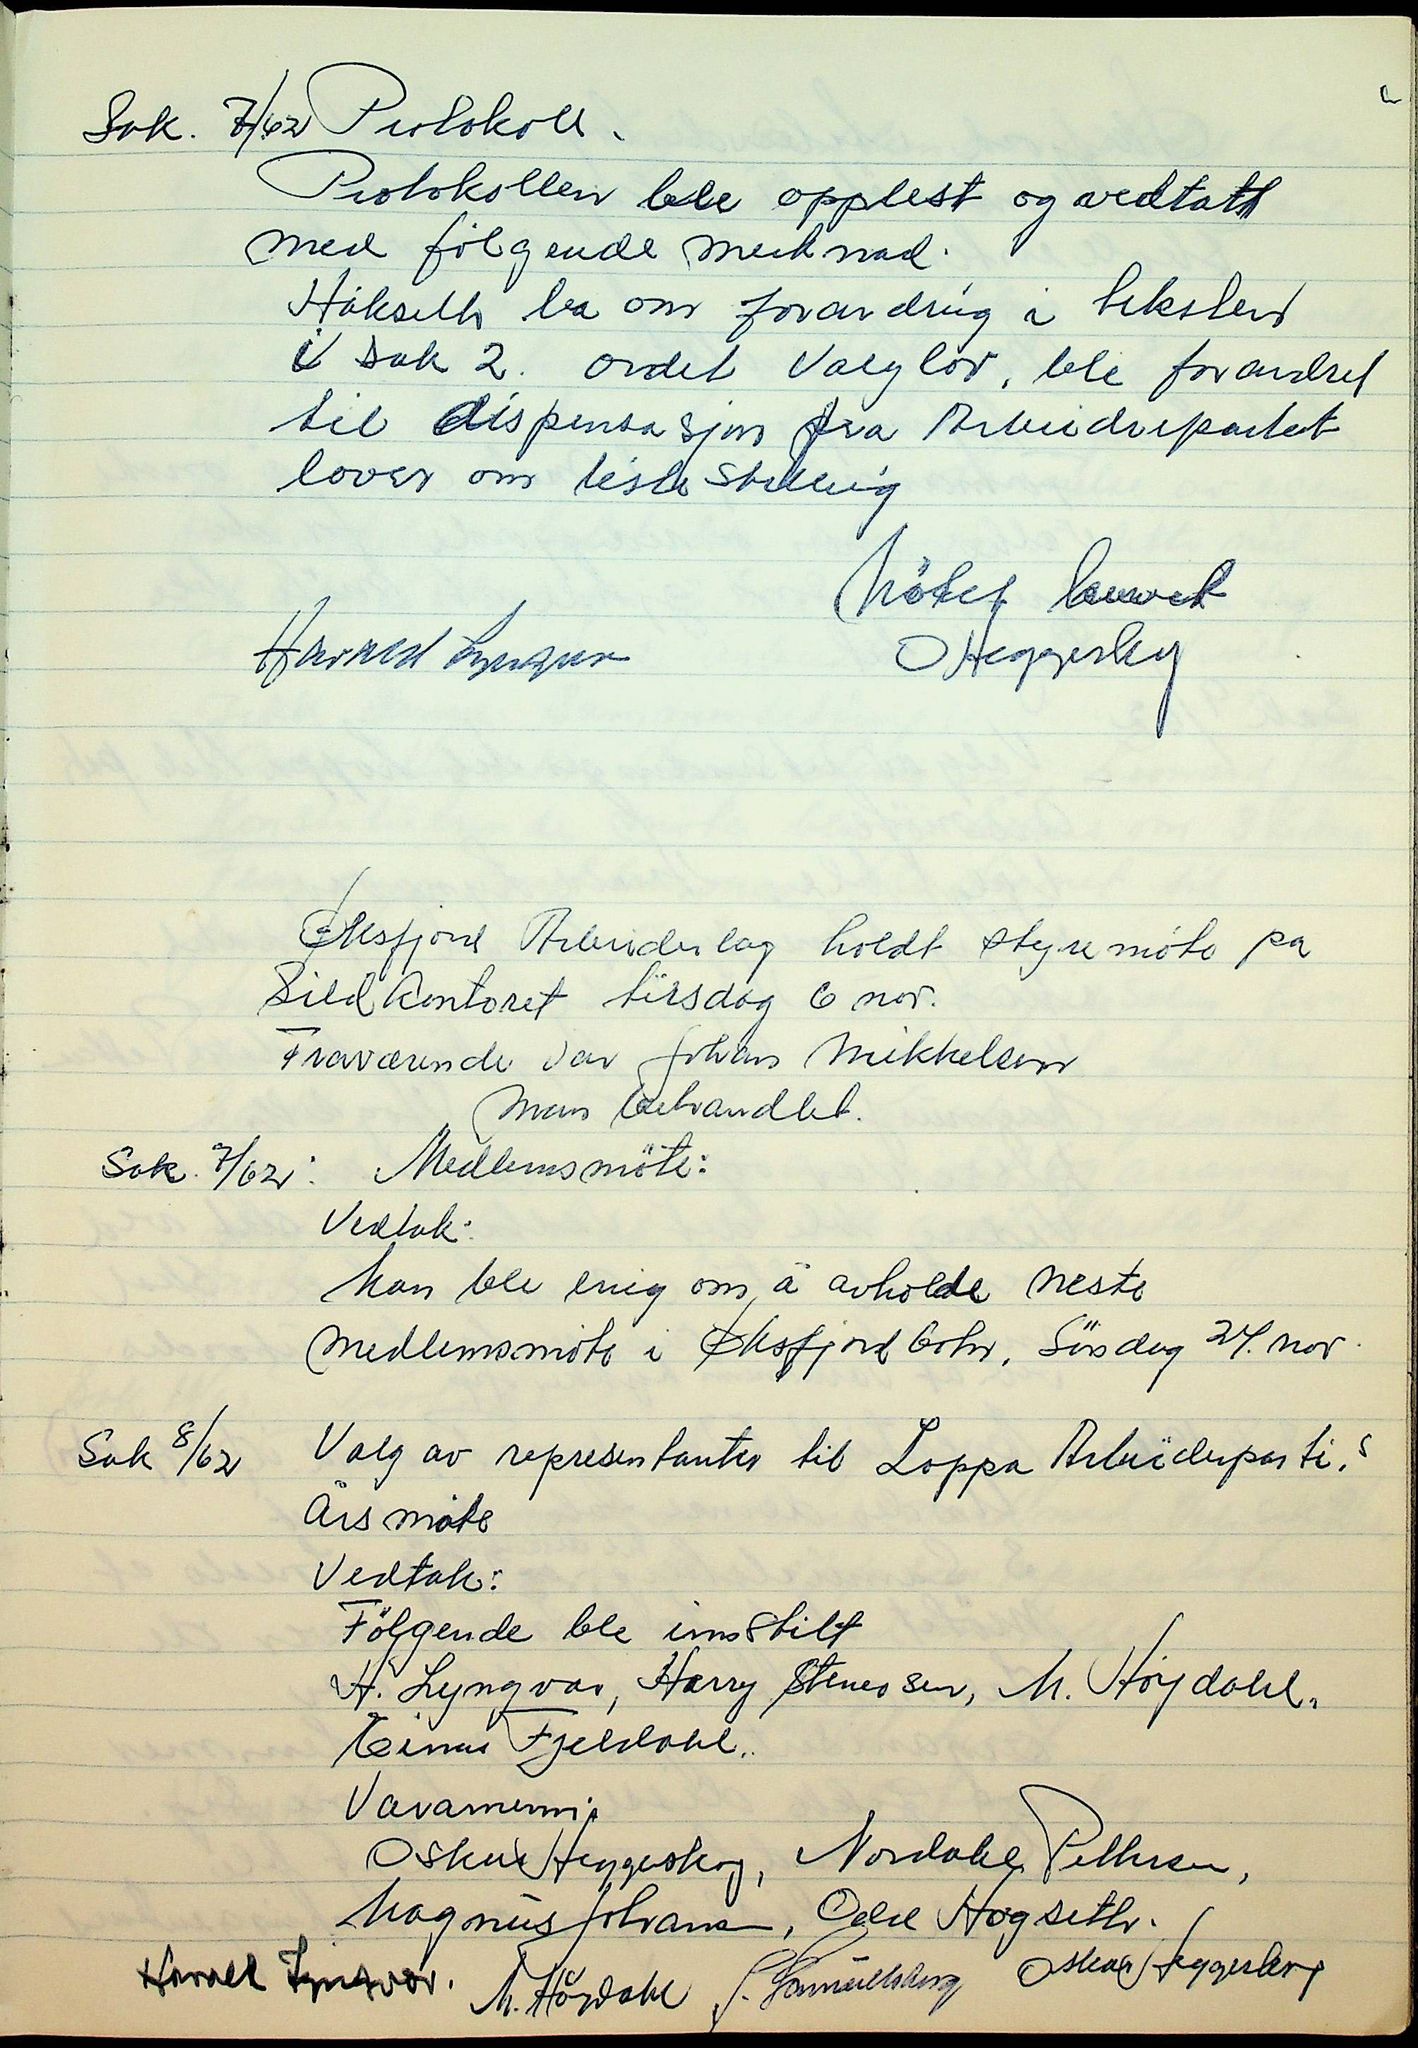 Sak. 7/62 Protokoll.
Protokollen ble opplest og vedtatt
med følgende merknad.
Håkseth ba om forandring i teksten
i sak 2. ordet Valglov, ble forandret
til dispensasjon fra Arbeiderpartiet
lover om listestilling
Møtet hevet
Harald Lyngvar OHeggerskog
Øksfjord Arbeiderlag holdt styremöte på
Sildkontoret tirsdag 6 nov.
Fraværende var Johan Mikkelsen
Man behandlet.
Sak. 7/62: Medlemsmöte:
Vedtak:
Man ble enig om, å avholde neste
medlemsmöte i Øksfjordbotn, Søndag 24. nov.
Sak 8/62 Valg av representanter til Loppa Arbeiderparti,s
Årsmöte
Vedtak:
Følgende ble innstilt
H. Lyngvar, Harry Stenersen, M. Höydahl.
Einar Fjeldahl.
Varamenn:
Oskar Heggerskog, Nordahl Pettersen,
Magnus Johansen, Odd Høgseth.
Harald Lyngvar. M. Höydahl S. Samuelsberg Oskar Heggerskog